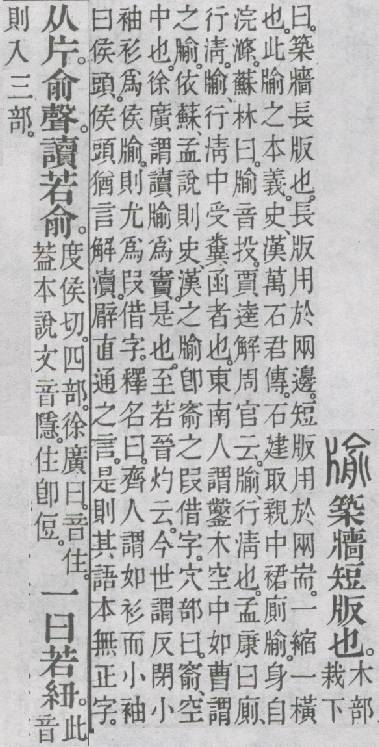 牏築牆短版也。木部
栽下
曰。築牆長版也。長版用於兩邊。短版用於兩耑。一縮一橫
也。此牏之本義。史、漢萬石君傳。石建取親中裙廁牏。身自
浣滌。蘇林曰。牏音投。賈逵解周官云。牏、行清也。孟康曰。廁、
行清。牏、行清中受糞函者也。東南人謂鑿木空中如曹謂
之牏。依蘇、孟說則史、漢之牏卽窬之叚借字。穴部曰。窬、空
中也。徐廣謂讀牏爲竇是也。至若晉灼云。今世謂反閉小
袖衫爲侯牏。則尤爲叚借字。釋名曰。齊人謂如衫而小袖
曰侯頭。侯頭猶言解瀆。臂直通之言。是則其語本無正字。
从片。俞聲。讀若俞。
度侯切。四部。徐廣曰。音住。
葢本說文音隱。住卽侸。
一曰若紐。
此
音
則入三部。